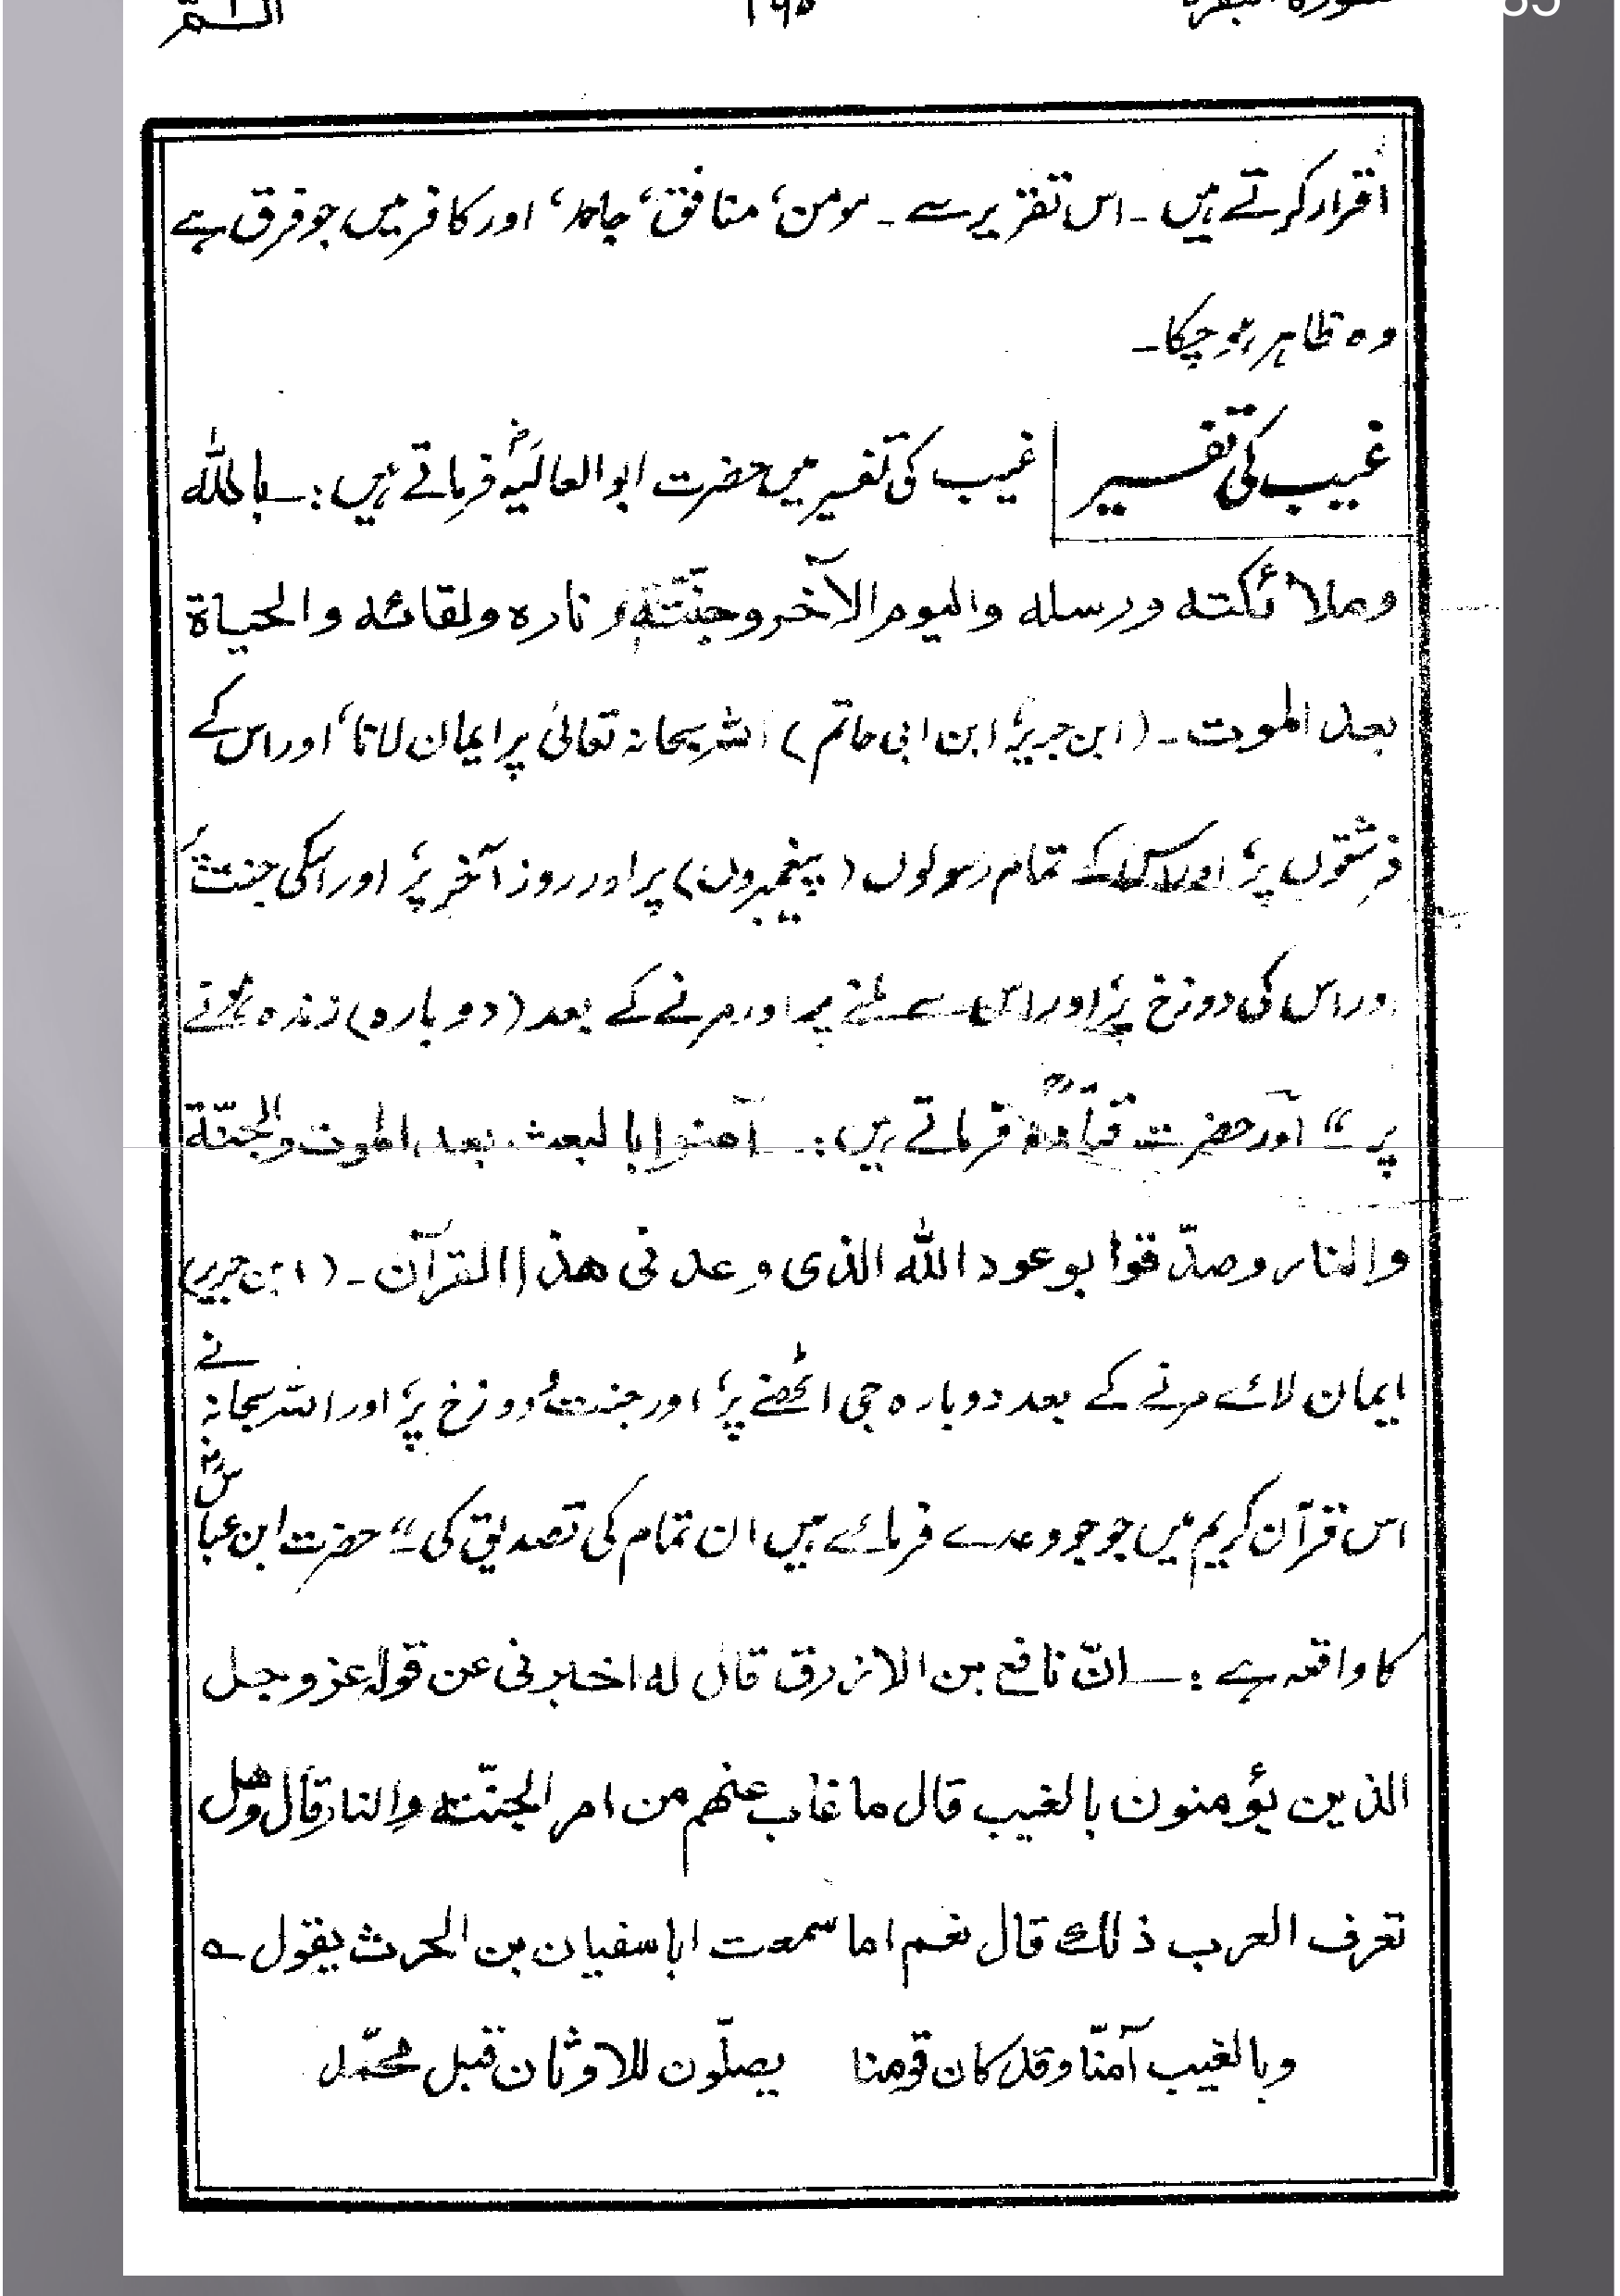 اقرار کرتے ہیں ۔ اس تقریر سے ۔ مومن، منافق، جاحد، اور کافر میں جو فرق ہے
وہ ظاہر ہو چکا ۔
غیب کی تفسیر غیب کی تفسیر میں حضرت ابو العالیہؒ فرماتے ہیں :۔ باللہ
وملائکتہ ورسلہ والیوم الآخر وجنّتہ و نارہ ولقائہ والحیاۃ
بعد الموت ۔ (ابن جریرؒ ابن ابی حاتم) اللہ سبحانہ تعالیٰ پر ایمان لانا، اور اس کے
فرشتوں پر، اور اس کے تمام رسولوں (پیغمبروں) پر اور روز آخر پر، اور اسکی جنت پر
اور اس کی دوزخ پر، اور اس سے ملنے پر اور مرنے کے بعد (دوبارہ) زندہ ہونے
پر “ اور حضرت قتادہؒ فرماتے ہیں :۔ آمنوا بالبعث بعد الموت والجنّۃ
والنار وصدّقوا بوعود اللہ الذی وعد فی ھذا القرآن ۔ (ابن جریر)
ایمان لائے مرنے کے بعد دوبارہ جی اٹھنے پر، اور جنت و دوزخ پر، اور اللہ سبحانہ نے
اس قرآن کریم میں جو جو وعدے فرمائے ہیں ان تمام کی تصدیق کی “ حضرت ابن عباسؓ
کا واقعہ ہے :۔ انّ نافع بن الازرق قال لہ اخبرنی عن قولہ عز وجل
الذین یؤمنون بالغیب قال ما غاب عنھم من امر الجنّۃ والنار قال وھل
تعرف العرب ذلک قال نعم اما سمعت ابا سفیان بن الحرث یقول ؎
وبالغیب آمنّا وقد کان قومنا یصلّون للاوثان قبل محمّد